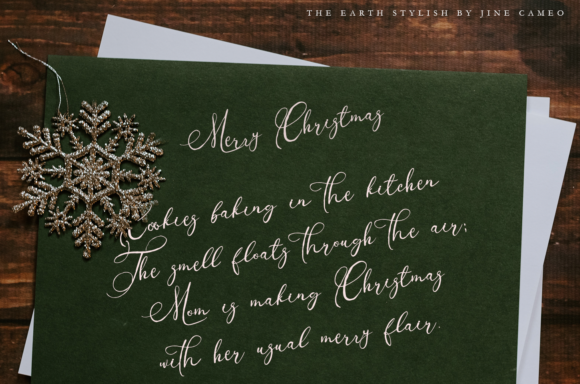 THE EARTH STYLISH BY JINE CAMEO
Merry Christmas
Cookies baking in the kitchen
The smell floats through the air;
Mom is making Christmas
with her usual merry flair.